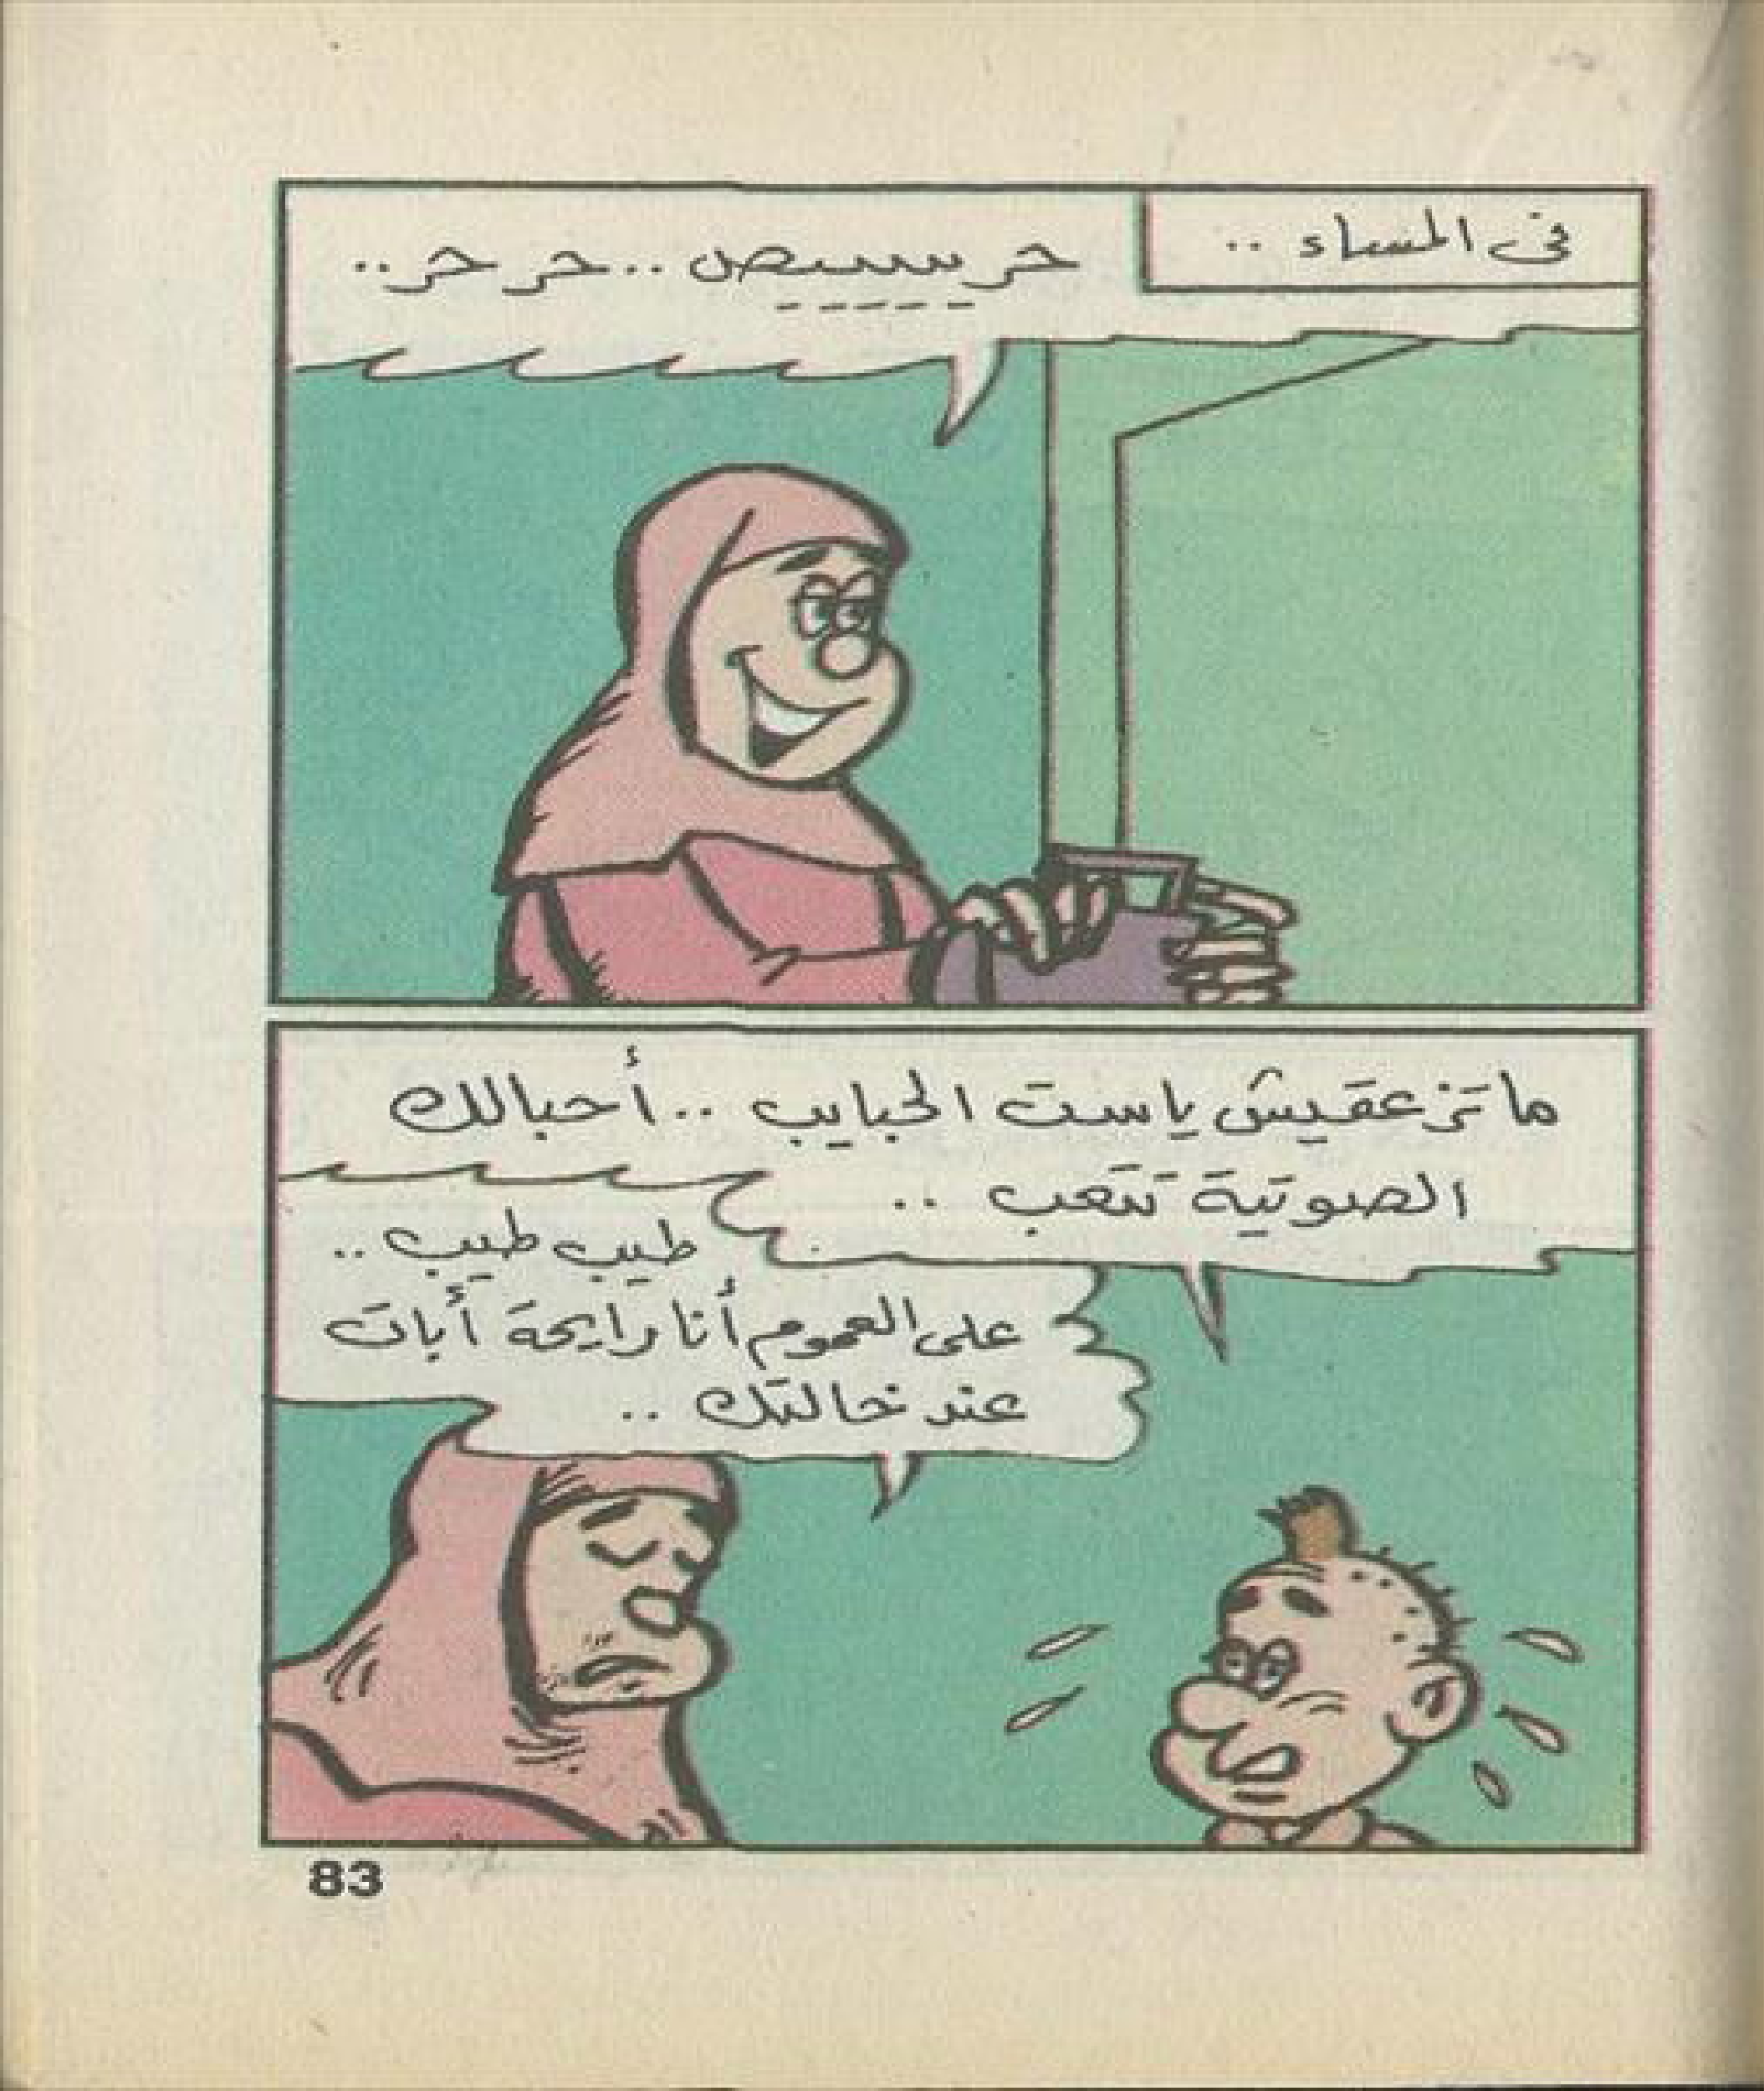 فى المساء ..
حريييييص .. حر حر ..
ماتزعقيش ياست الحبايب .. أحبالك
الصوتية تتعب ..
طيب طيب ..
على العموم أنا رايحة أبات
عند خالتك ..
83